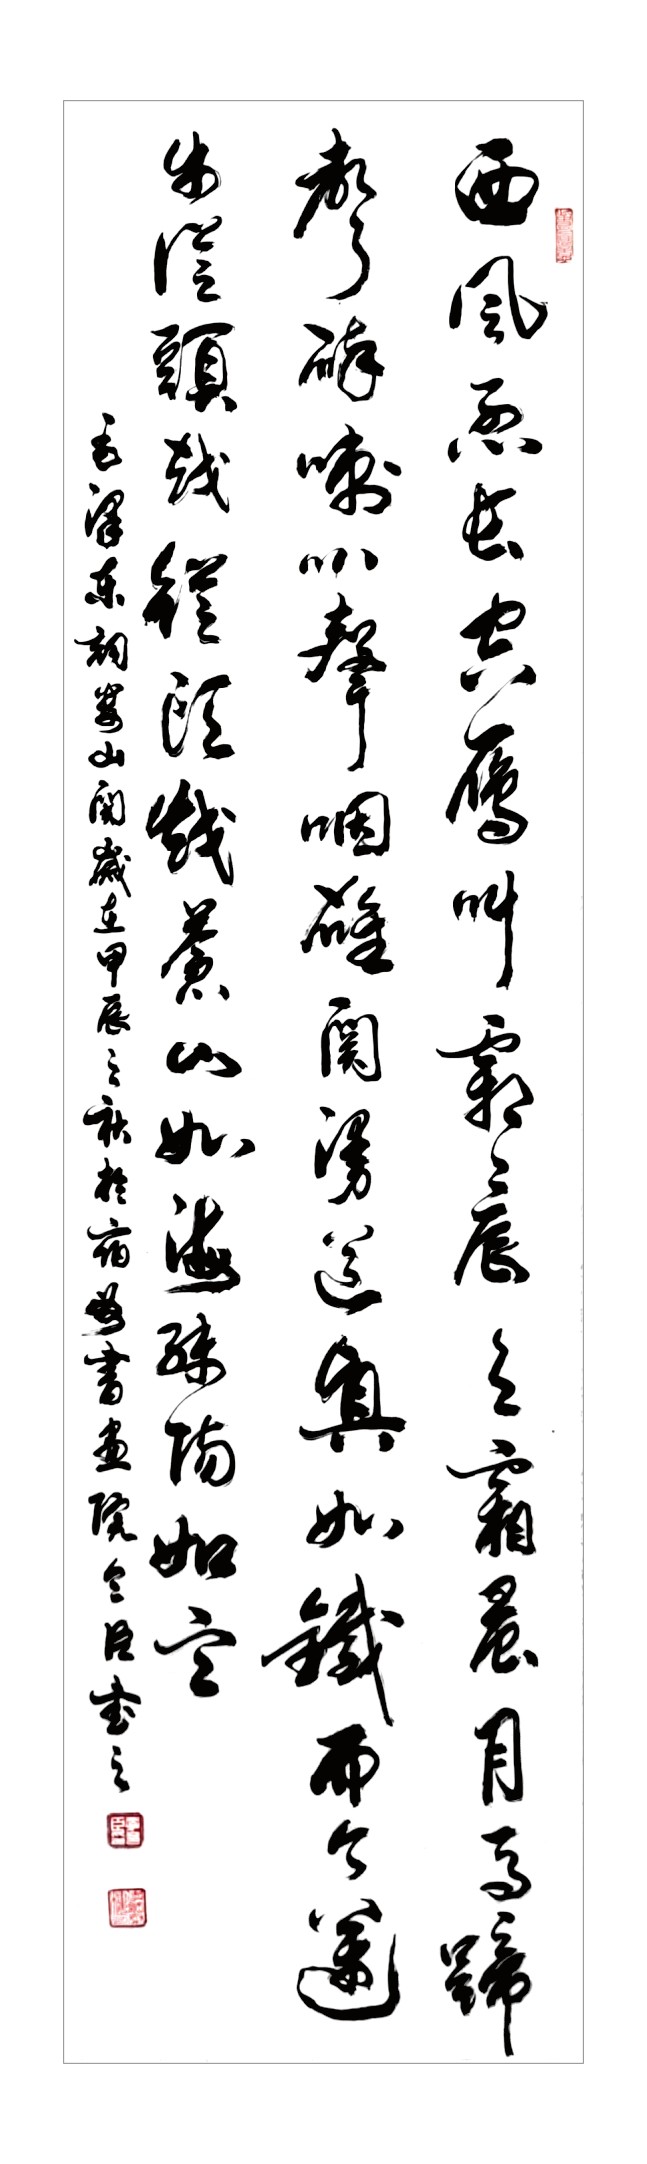 西風烈長空雁叫霜晨月霜晨月馬蹄
聲碎喇叭聲咽雄關漫道真如鐵而今邁
步從頭越從頭越蒼山如海殘陽如血
毛澤東詞婁山關歲在甲辰之秋於宿書畫院臣書之